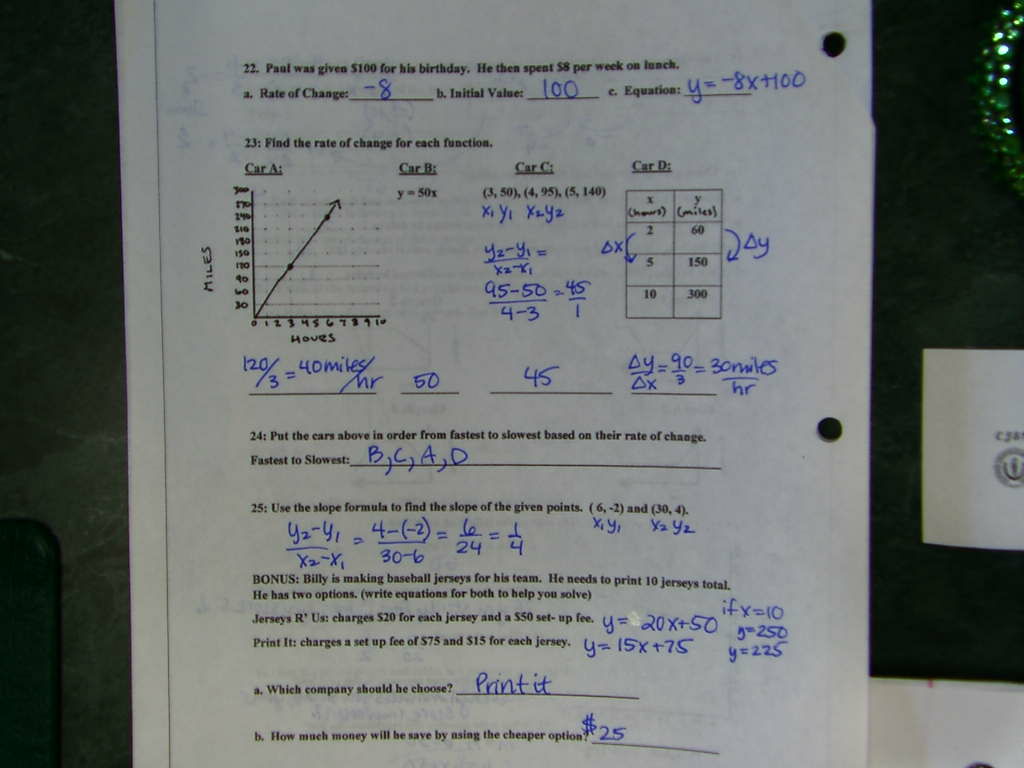 22. Paul was given $100 for his birthday. He then spent $8 per week on lunch.
a. Rate of Change: -8 b. Initial Value: 100 c. Equation: y = -8x+100
23: Find the rate of change for each function.
Car A: Car B: Car C: Car D:
y = 50x (3, 50), (4, 95), (5, 140)
x₁ y₁ x₂ y₂
x (hours) y (miles)
2 60
5 150
10 300
Δx Δy
300
270
240
210
180
150
120
90
60
30
MILES
0 1 2 3 4 5 6 7 8 9 10
HOURS
y₂-y₁ =
x₂-x₁
95-50 = 45
4-3 1
120/3 = 40 miles/hr 50 45 Δy/Δx = 90/3 = 30 miles/hr
24: Put the cars above in order from fastest to slowest based on their rate of change.
Fastest to Slowest: B, C, A, D
25: Use the slope formula to find the slope of the given points. ( 6, -2) and (30, 4).
x₁ y₁ x₂ y₂
y₂-y₁ = 4-(-2) = 6 = 1
x₂-x₁ 30-6 24 4
BONUS: Billy is making baseball jerseys for his team. He needs to print 10 jerseys total.
He has two options. (write equations for both to help you solve)
Jerseys R' Us: charges $20 for each jersey and a $50 set- up fee. y = 20x+50 if x=10
y=250
Print It: charges a set up fee of $75 and $15 for each jersey. y = 15x+75 y=225
a. Which company should he choose? Print it
b. How much money will he save by using the cheaper option? $25